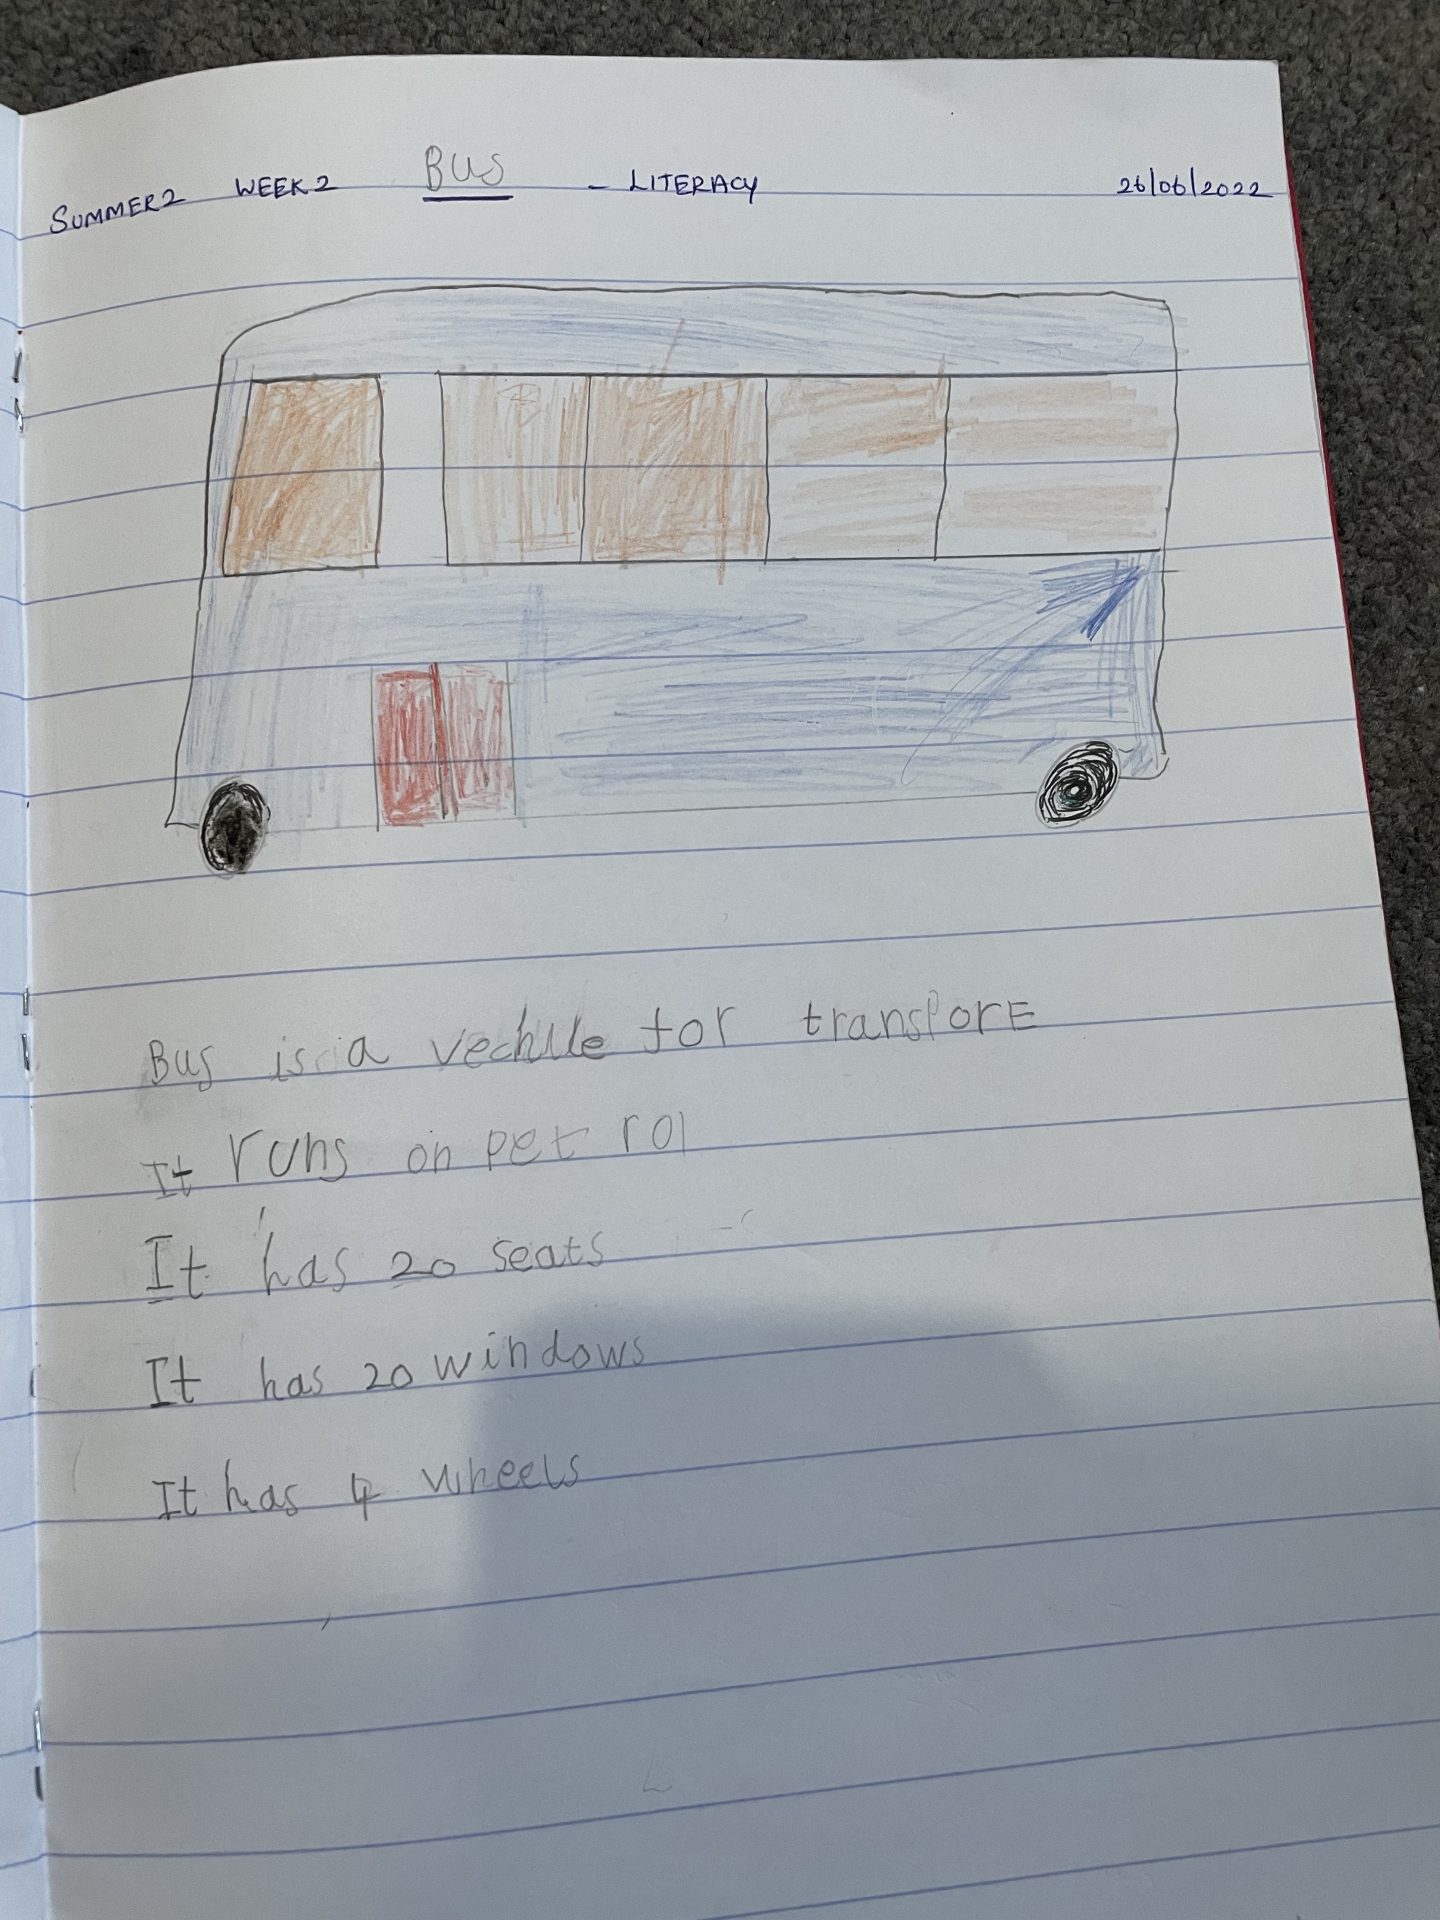 SUMMER 2 WEEK 2 BUS - LITERACY 26/06/2022
Bus is a vechile for transport
It runs on petrol
It has 20 seats
It has 20 windows
It has 4 wheels